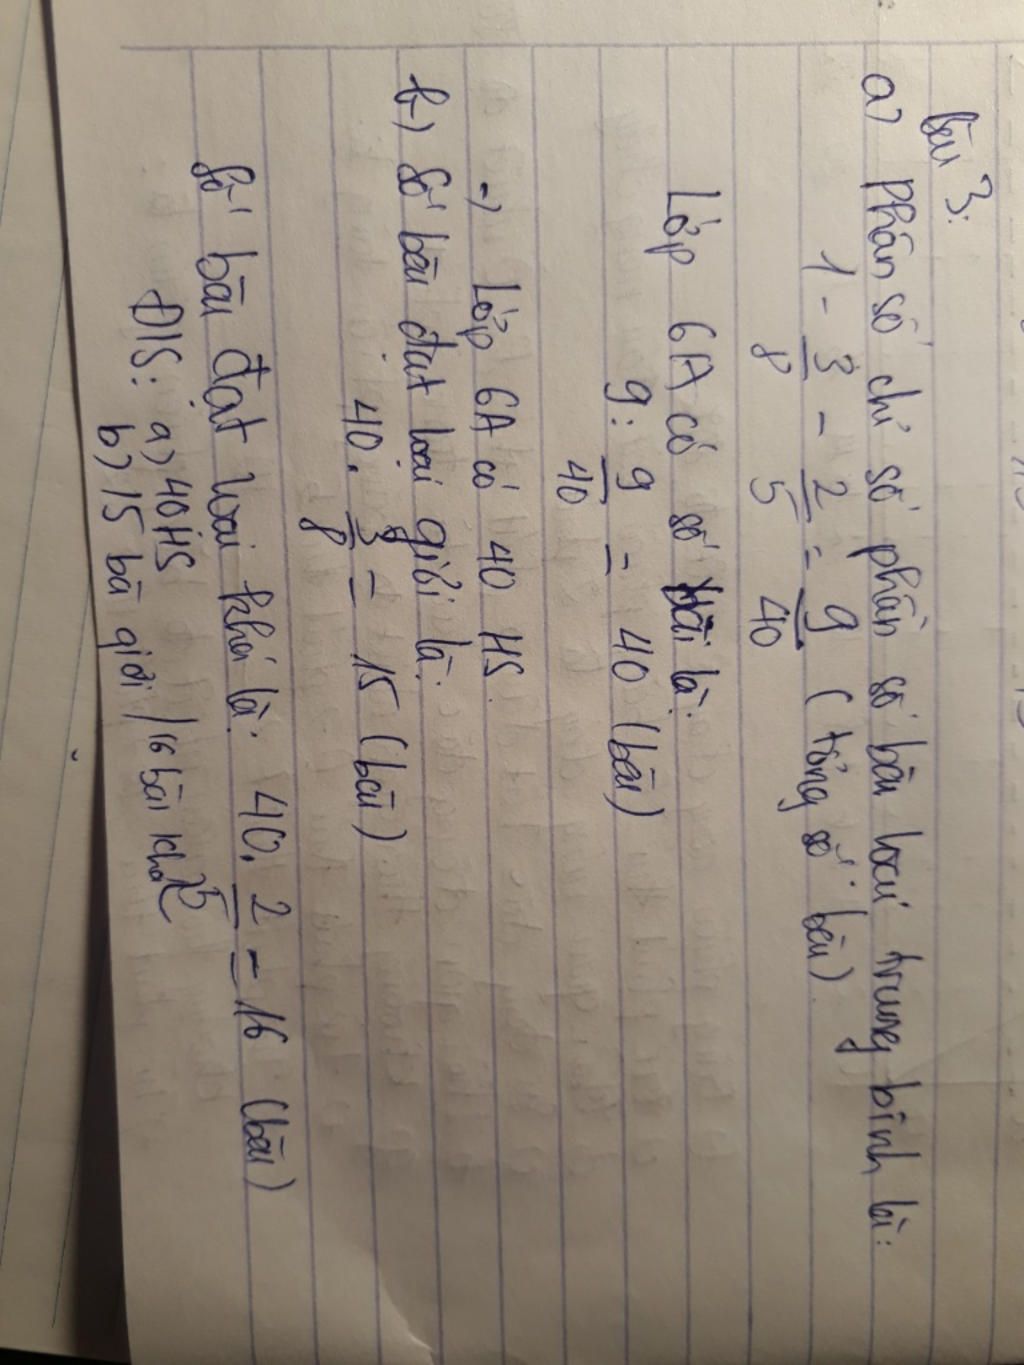 Bài 3:
a) Phân số chỉ số phần số bài loại trung bình là:
1 - 3/8 - 2/5 = 9/40 (tổng số bài)
Lớp 6A có số bài là:
9 : 9/40 = 40 (bài)
-) Lớp 6A có 40 HS.
b) Số bài đạt loại giỏi là:
40 . 3/8 = 15 (bài)
Số bài đạt loại khá là: 40 . 2/5 = 16 (bài)
Đ/S: a) 40HS
b) 15 bà giỏi / 16 bài khá